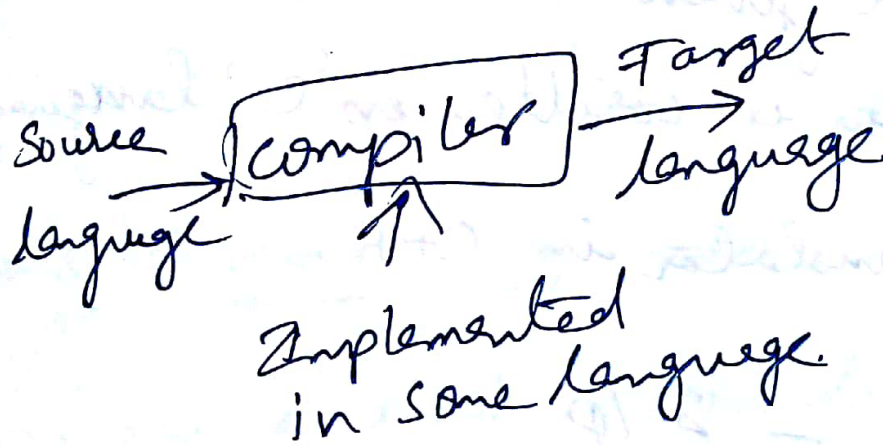 Source
language
compiler
Target
language
Implemented
in some language.